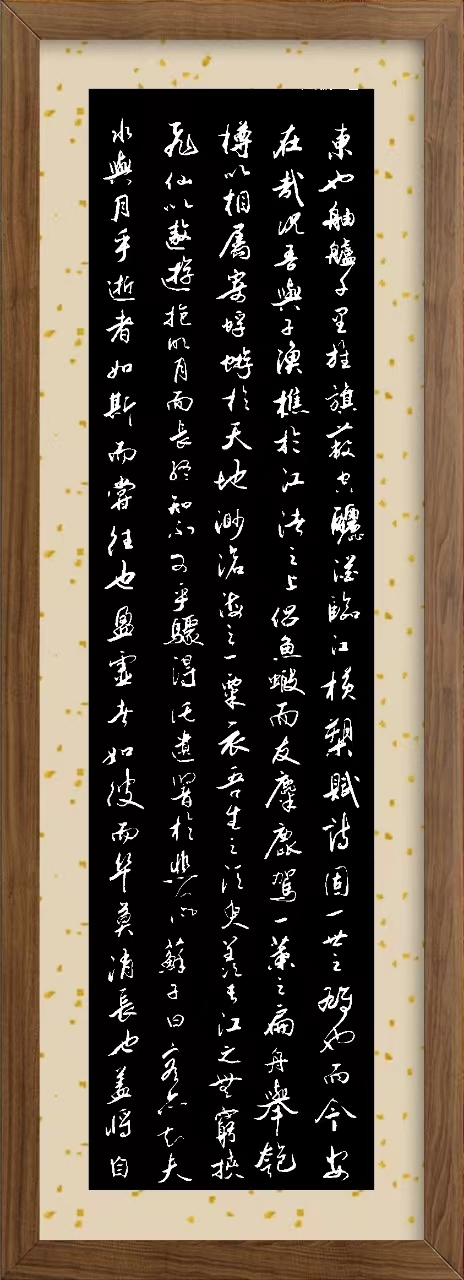 東也舳艫千里旌旗蔽空釃酒臨江橫槊賦詩固一世之雄也而今安
在哉況吾與子漁樵於江渚之上侶魚蝦而友麋鹿駕一葉之扁舟舉匏
樽以相屬寄蜉蝣於天地渺滄海之一粟哀吾生之須臾羨長江之無窮挾
飛仙以遨遊抱明月而長終知不可乎驟得託遺響於悲風蘇子曰客亦知夫
水與月乎逝者如斯而嘗往也盈虛者如彼而卒莫消長也蓋將自